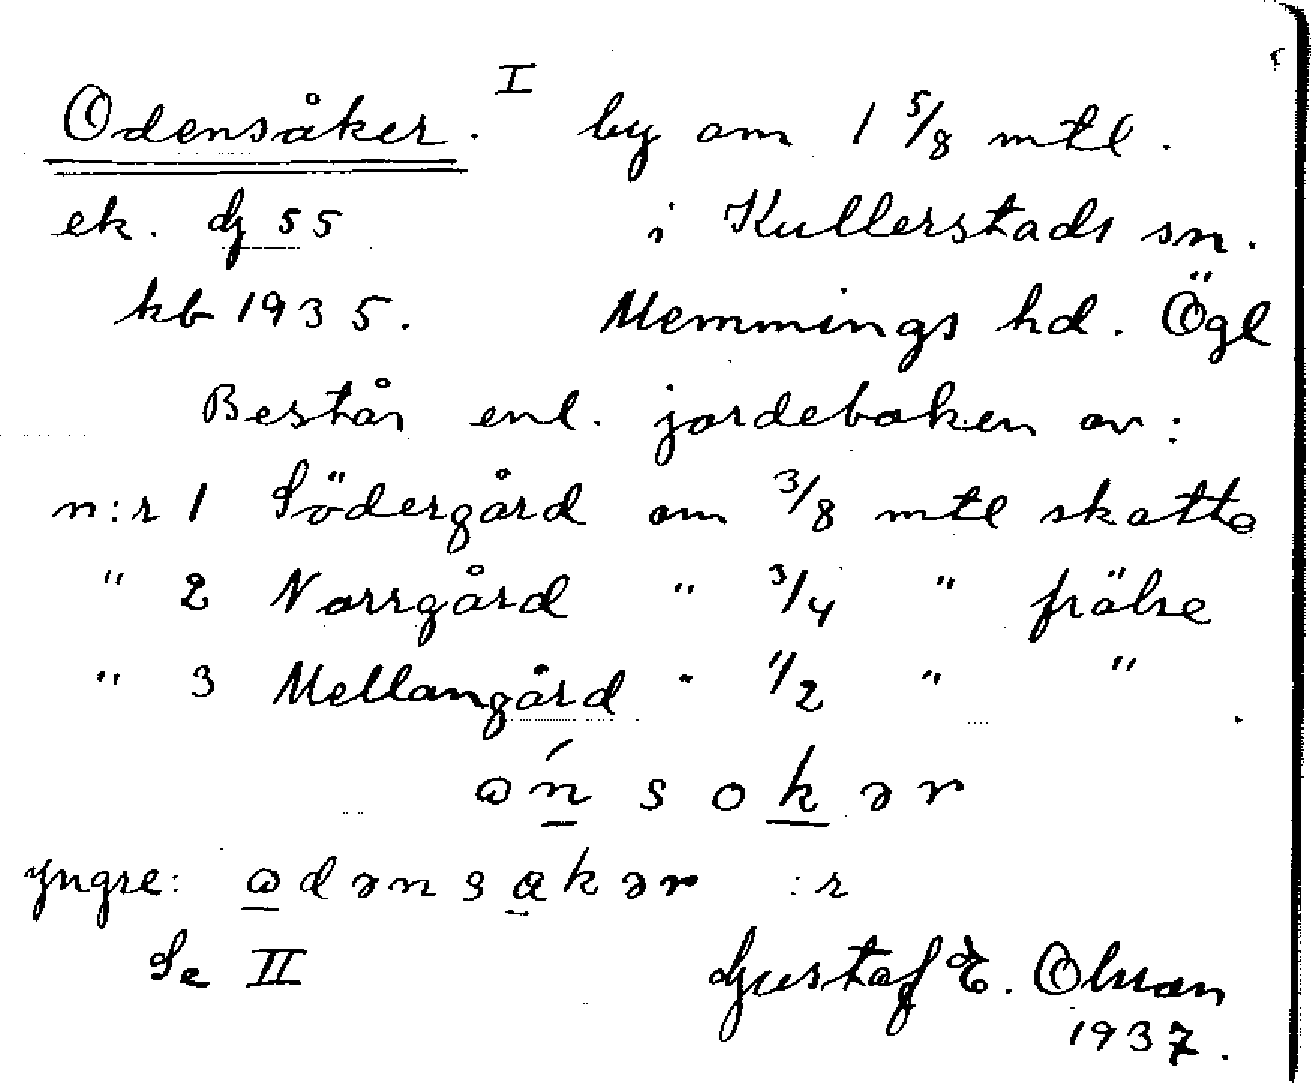 Odensåker. I by om 1 5/8 mtl.
ek. dj 55 i Kullerstads sn.
kb 1935. Memmings hd. Ögl
Består enl. jordeboken av:
n:r 1 Södergård om 3/8 mtl skatte
" 2 Norrgård " 3/4 " frälse
" 3 Mellangård " 1/2 " "
yngre: :r
Se II Gustaf E. Olsson
1937.